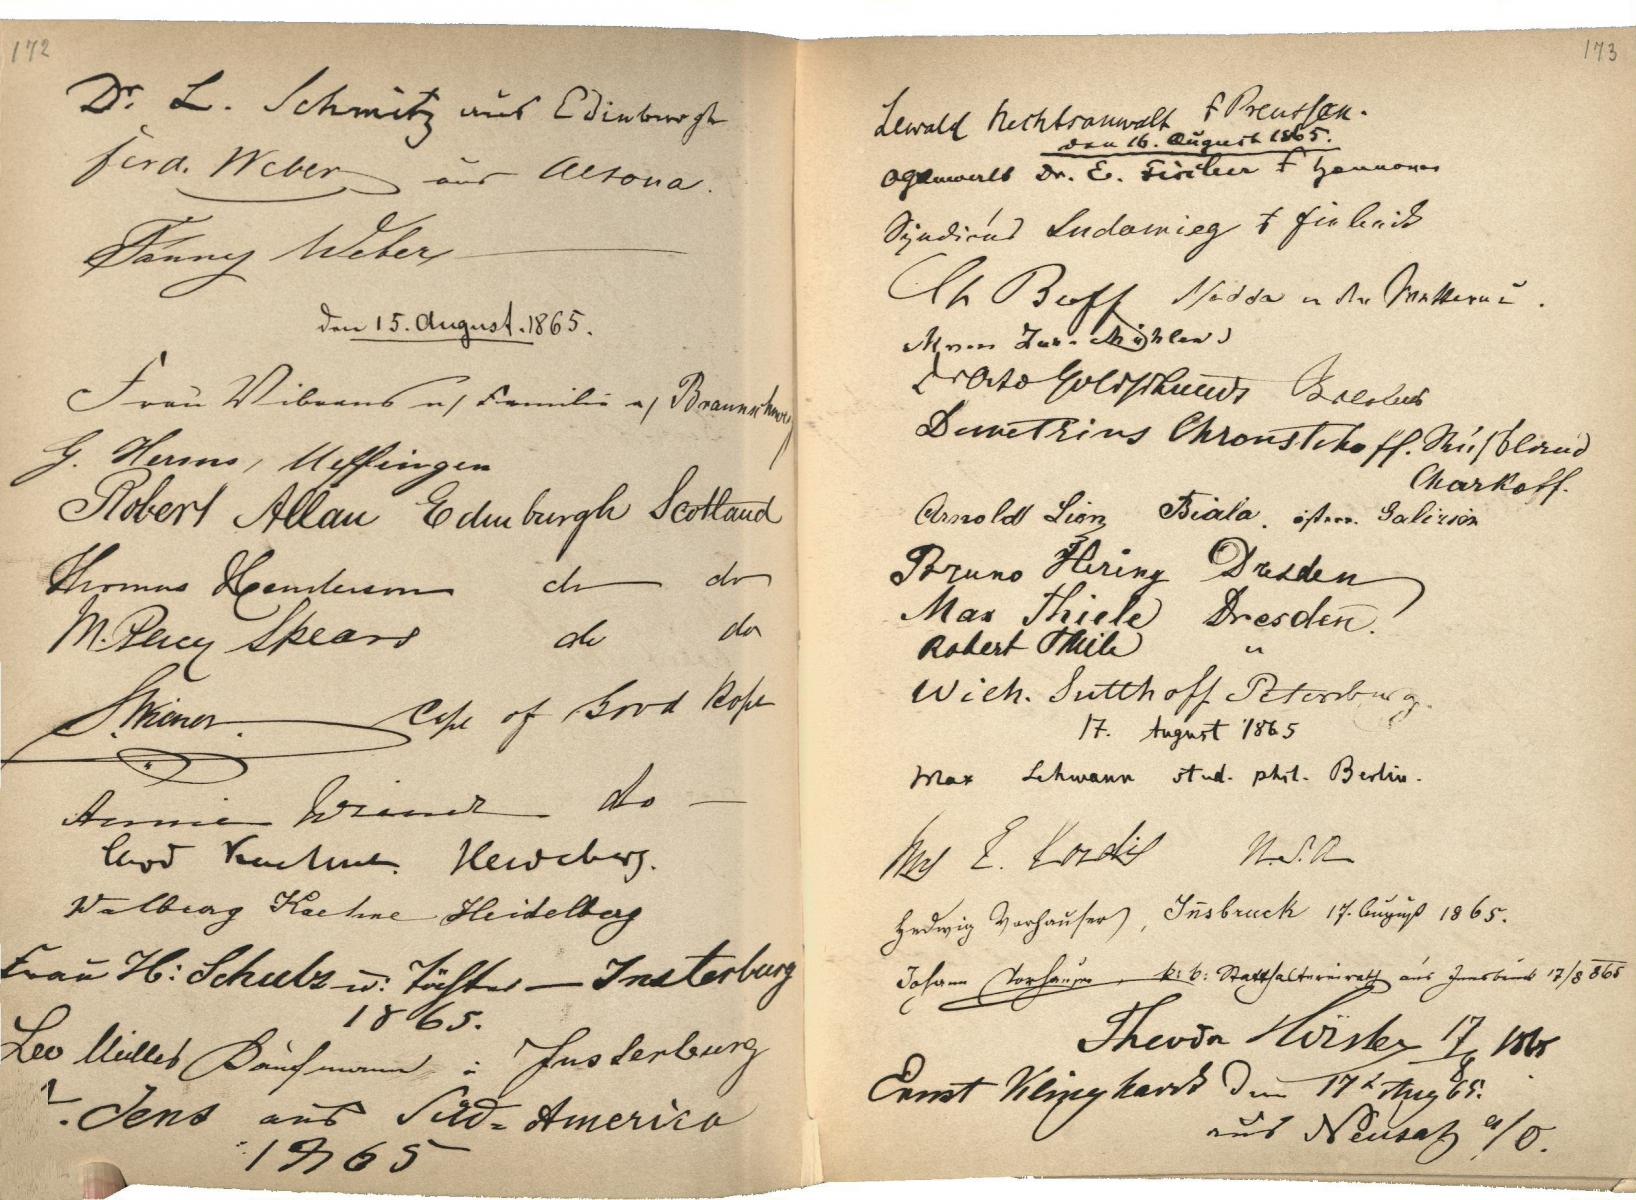 172
Dr. L. Schmitz aus Edinburgh
Ferd. Weber aus Altona.
Fanny Weber
den 15. August. 1865.
Frau Vibrans u/ Familie a/ Braunschweig
G. Herms, Ueffingen
Robert Allan Edinburgh Scotland
Thomas Henderson do do
M. Percy Spears do do
Cape of Good Hope
Annie Wiener do
Heidelberg.
Walburg Kaehne Heidelberg
Frau H: Schulz u: Töchter – Insterburg
1865.
Leo Müller Kaufmann : Insterburg
Jens aus Süd-America
1865
173
Lewald Rechtsanwalt f Preussen.
den 16. August 1865.
Dr. E. Fischer f Hannover
Syndicus
Ch Buff Nidda in der Wetterau.
Zur Mühlen
Dr Otto Goldschmidt
Demetrius Chroustchoff. Russland
Charkoff.
Arnold Lion Biala. österr. Galizien
Bruno Hering Dresden
Max Thiele Dresden.
Robert Thile "
Wich. Sutthoff Petersburg.
17. August 1865
Max Lehmann stud. phil. Berlin.
Mrs E.
Hedwig Vorhauser, Innsbruck 17. August 1865.
Johann Vorhauser, k: k: Statthaltereirath aus Innsbruck 17/8 865
Theodor 17/8 1865
Ernst Klinghardt den 17t Aug 65.
aus Neusalz a/O.